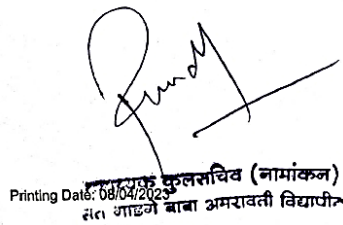 कुलसचिव (नामांकन)
Printing Date: 08/04/2023
गाडगे बाबा अमरावती विद्यापीठ